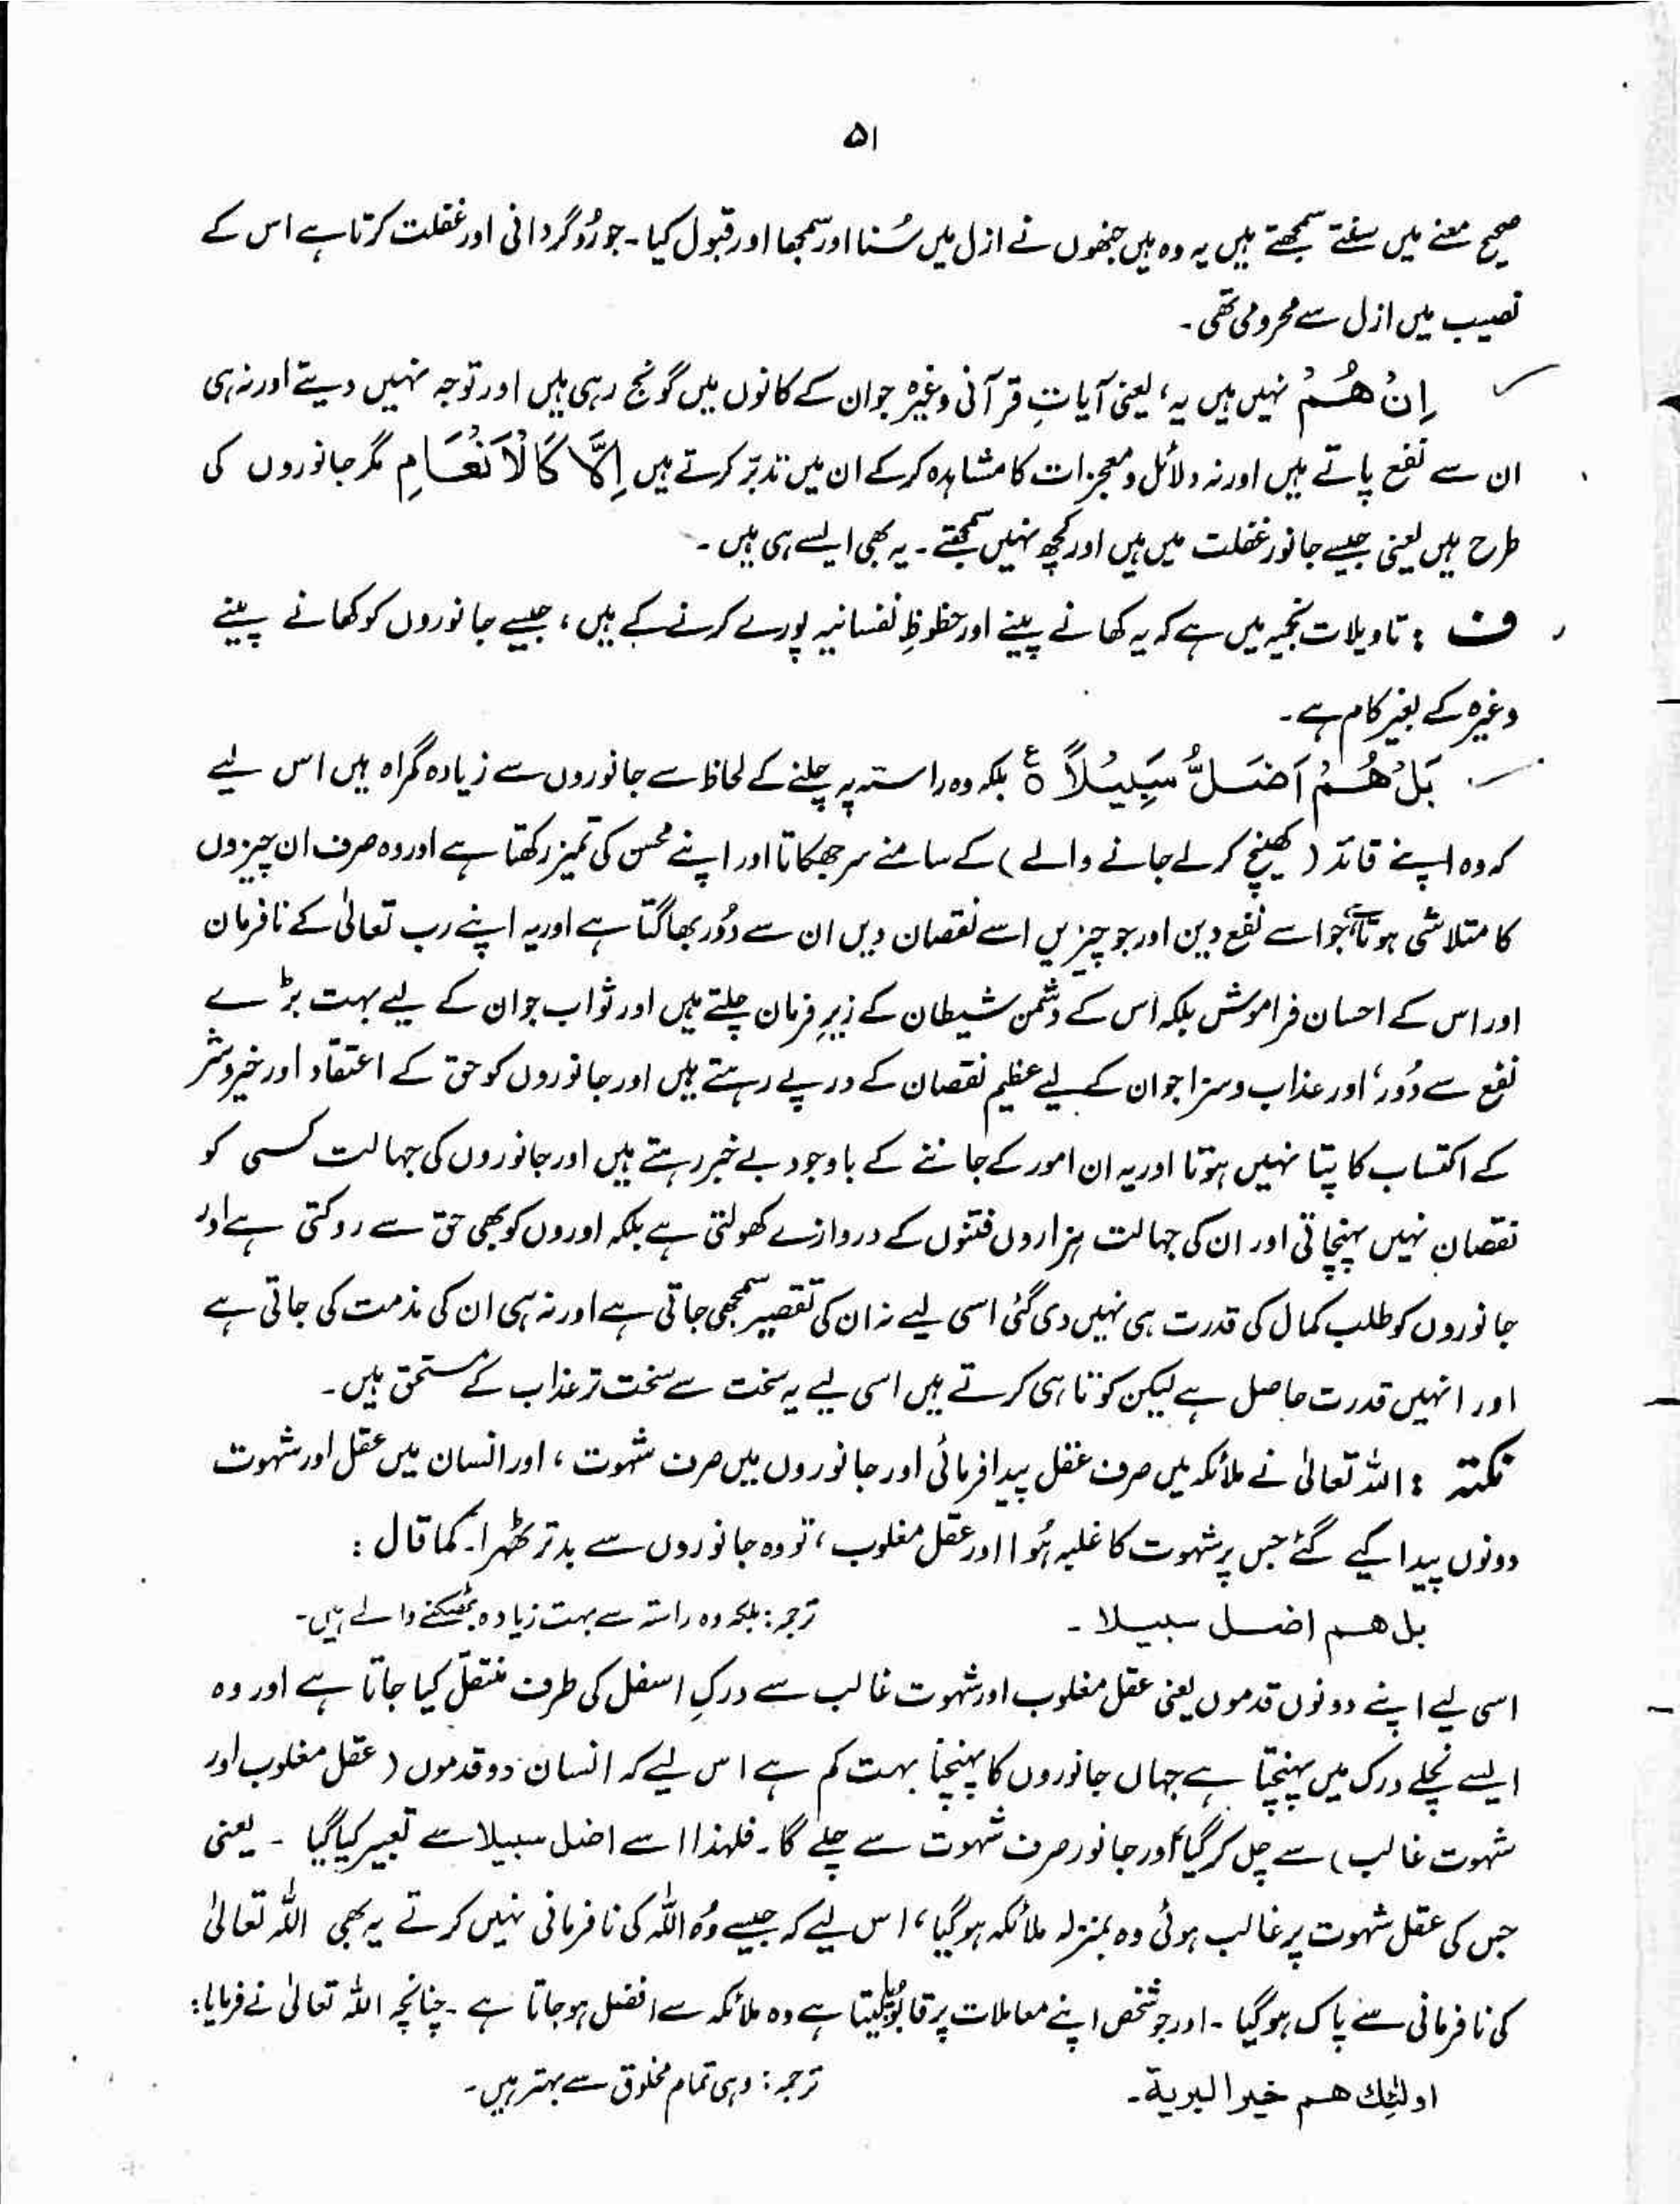 ۵۱
صحیح معنے میں سنتے سمجھتے ہیں یہ وہ ہیں جنھوں نے ازل میں سُنا اور سمجھا اور قبول کیا۔ جو رُوگردانی اور غفلت کرتا ہے اس کے
نصیب میں ازل سے محرومی تھی۔
اِنْ هُمْ نہیں ہیں یہ، یعنی آیاتِ قرآنی وغیرہ جو ان کے کانوں میں گونج رہی ہیں اور توجہ نہیں دیتے اور نہ ہی
ان سے نفع پاتے ہیں اور نہ دلائل و معجزات کا مشاہدہ کرکے ان میں تدبّر کرتے ہیں اِلَّا كَالْاَنْعَامِ مگر جانوروں کی
طرح ہیں یعنی جیسے جانور غفلت میں ہیں اور کچھ نہیں سمجھتے۔ یہ بھی ایسے ہی ہیں۔
ف : تاویلات نجمیہ میں ہے کہ یہ کھانے پینے اور حظوظِ نفسانیہ پورے کرنے کے ہیں، جیسے جانوروں کو کھانے پینے
وغیرہ کے بغیر کام ہے۔
بَلْ هُمْ اَضَلُّ سَبِيْلًا ۝ ع بلکہ وہ راستہ پہ چلنے کے لحاظ سے جانوروں سے زیادہ گمراہ ہیں اس لیے
کہ وہ اپنے قائد (کھینچ کر لے جانے والے) کے سامنے سر جھکاتا اور اپنے محسن کی تمیز رکھتا ہے اور وہ صرف ان چیزوں
کا متلاشی ہوتا ہے جو اسے نفع دین اور جو چیزیں اسے نقصان دیں ان سے دُور بھاگتا ہے اور یہ اپنے رب تعالیٰ کے نافرمان
اور اس کے احسان فراموش بلکہ اس کے دشمن شیطان کے زیرِ فرمان چلتے ہیں اور ثواب جو ان کے لیے بہت بڑے
نفع سے دُور، اور عذاب و سزا جو ان کے لیے عظیم نقصان کے درپے رہتے ہیں اور جانوروں کو حق کے اعتقاد اور خیر و شر
کے اکتساب کا پتا نہیں ہوتا اور یہ ان امور کے جاننے کے باوجود بے خبر رہتے ہیں اور جانوروں کی جہالت کسی کو
نقصان نہیں پہنچاتی اور ان کی جہالت ہزاروں فتنوں کے دروازے کھولتی ہے بلکہ اوروں کو بھی حق سے روکتی ہے اور
جانوروں کو طلب کمال کی قدرت ہی نہیں دی گئی اسی لیے نہ ان کی تقصیر سمجھی جاتی ہے اور نہ ہی ان کی مذمت کی جاتی ہے
اور انہیں قدرت حاصل ہے لیکن کوتاہی کرتے ہیں اسی لیے یہ سخت سے سخت تر عذاب کے مستحق ہیں۔
نکتہ : اللہ تعالیٰ نے ملائکہ میں صرف عقل پیدا فرمائی اور جانوروں میں صرف شہوت، اور انسان میں عقل اور شہوت
دونوں پیدا کیے گئے جس پر شہوت کا غلبہ ہُوا اور عقل مغلوب، تو وہ جانوروں سے بدتر ٹھہرا۔ کما قال :
بل هم اضل سبيلا ۔ ترجمہ: بلکہ وہ راستہ سے بہت زیادہ بھٹکنے والے ہیں۔
اسی لیے اپنے دونوں قدموں یعنی عقل مغلوب اور شہوت غالب سے درکِ اسفل کی طرف منتقل کیا جاتا ہے اور وہ
ایسے نچلے درک میں پہنچتا ہے جہاں جانوروں کا پہنچنا بہت کم ہے اس لیے کہ انسان دو قدموں (عقل مغلوب اور
شہوت غالب) سے چل کر گیا اور جانور صرف شہوت سے چلے گا۔ فلہذا اسے اضل سبیلا سے تعبیر کیا گیا ۔ یعنی
جس کی عقل شہوت پر غالب ہوئی وہ بمنزلہ ملائکہ ہوگیا، اس لیے کہ جیسے وُہ اللہ کی نافرمانی نہیں کرتے یہ بھی اللہ تعالیٰ
کی نافرمانی سے پاک ہوگیا ۔ اور جو شخص اپنے معاملات پر قابو پا لیتا ہے وہ ملائکہ سے افضل ہوجاتا ہے ۔ چنانچہ اللہ تعالیٰ نے فرمایا:
اولئك هم خير البرية۔ ترجمہ: وہی تمام مخلوق سے بہتر ہیں۔